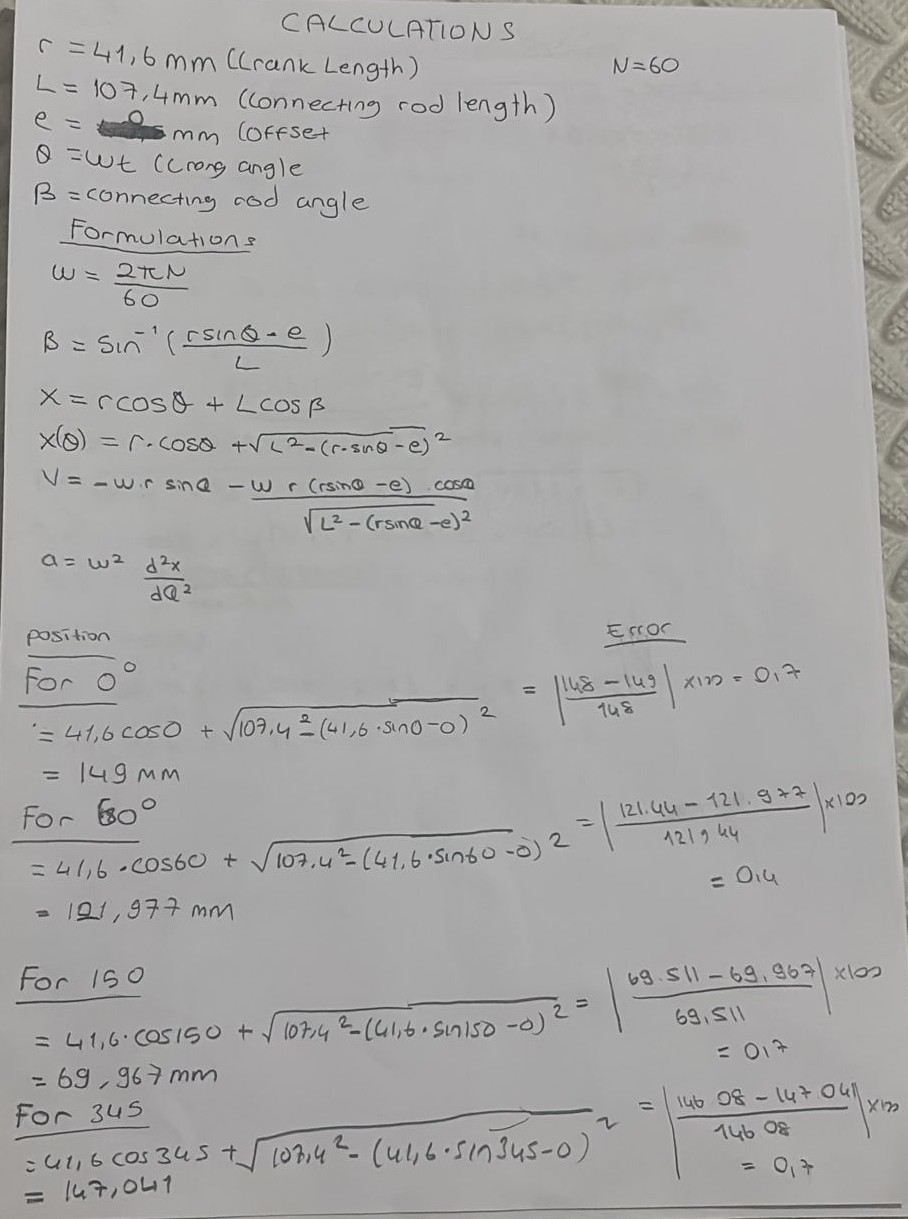 CALCULATIONS
r = 41,6 mm (Crank Length) N=60
L = 107,4mm (Connecting rod length)
e = 0 mm (OFFset
θ = wt (Crang angle
β = connecting rod angle
Formulations
w = 2πN / 60
β = sin⁻¹ ( (rsinθ - e) / L )
x = rcosθ + Lcosβ
x(θ) = r.cosθ + √(L² - (r.sinθ - e)²)
V = -w.r sinθ - w r (rsinθ - e) .cosθ / √(L² - (rsinθ - e)²)
a = w² d²x / dθ²
position Error
For 0°
= 41,6 cos0 + √(107,4² - (41,6.sin0 - 0)²) = |(148 - 149) / 148| x100 = 0,7
= 149 mm
For 60°
= 41,6 .cos60 + √(107.4² - (41,6.sin60 - 0)²) = |(121.44 - 121.977) / 121944| x100
= 0,4
= 121,977 mm
For 150
= 41,6.cos150 + √(107,4² - (41,6.sin150 - 0)²) = |(69.511 - 69.967) / 69,511| x100
= 0,7
= 69,967mm
For 345
= 41,6 cos345 + √(107,4² - (41,6.sin345 - 0)²) = |(146 08 - 147.041) / 146 08| x100
= 0,7
= 147,041